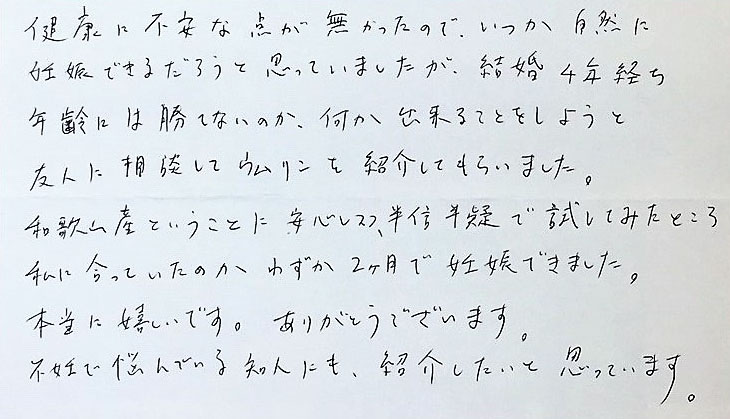 健康に不安な点が無かったので、いつか自然に
妊娠できるだろうと思っていましたが、結婚4年経ち
年齢には勝てないのか、何か出来ることをしようと
友人に相談してウムリンを紹介してもらいました。
和歌山産ということに安心しつつ、半信半疑で試してみたところ
私に合っていたのかわずか2ヶ月で妊娠できました。
本当に嬉しいです。ありがとうございます。
不妊で悩んでいる知人にも、紹介したいと思っています。